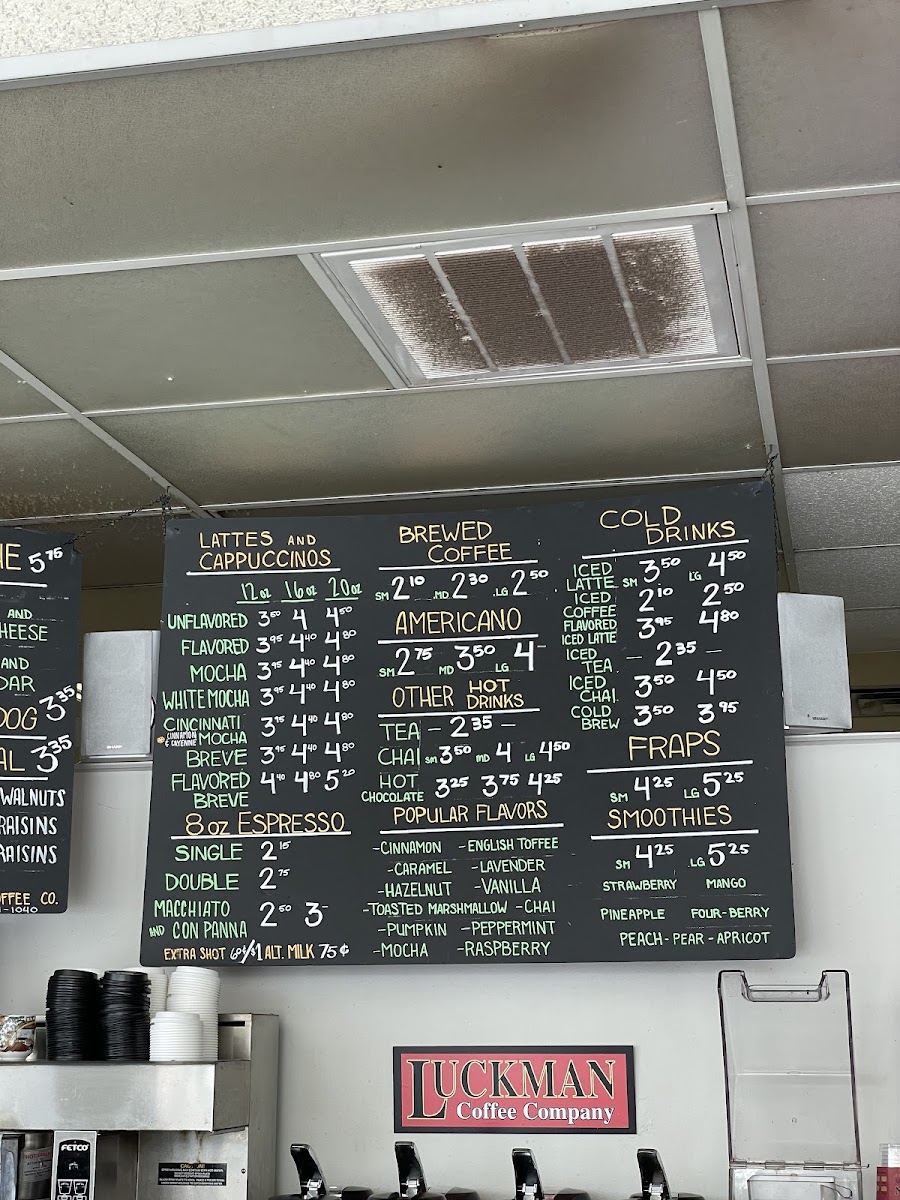 HE 5.75
AND
HEESE
AND
DAR
DOG 3.35
AL 3.35
WALNUTS
RAISINS
RAISINS
FFEE CO.
-1040
LATTES AND
CAPPUCCINOS
12 oz 16 oz 20 oz
UNFLAVORED 3.50 4 4.50
FLAVORED 3.95 4.40 4.80
MOCHA 3.95 4.40 4.80
WHITE MOCHA 3.95 4.40 4.80
CINCINNATI
CINNAMON & CAYENNE MOCHA 3.95 4.40 4.80
BREVE 3.95 4.40 4.80
FLAVORED
BREVE 4.40 4.80 5.20
8 oz ESPRESSO
SINGLE 2.15
DOUBLE 2.75
MACCHIATO
AND CON PANNA 2.50 3-
EXTRA SHOT 60¢/$1 ALT. MILK 75¢
BREWED
COFFEE
SM 2.10 MD 2.30 LG 2.50
AMERICANO
SM 2.75 MD 3.50 LG 4-
OTHER HOT
DRINKS
TEA - 2.35 -
CHAI SM 3.50 MD 4 LG 4.50
HOT
CHOCOLATE 3.25 3.75 4.25
POPULAR FLAVORS
-CINNAMON -ENGLISH TOFFEE
-CARAMEL -LAVENDER
-HAZELNUT -VANILLA
-TOASTED MARSHMALLOW -CHAI
-PUMPKIN -PEPPERMINT
-MOCHA -RASPBERRY
COLD
DRINKS
ICED
LATTE SM 3.50 LG 4.50
ICED
COFFEE 2.10 2.50
FLAVORED
ICED LATTE 3.95 4.80
ICED
TEA - 2.35 -
ICED
CHAI 3.50 4.50
COLD
BREW 3.50 3.95
FRAPS
SM 4.25 LG 5.25
SMOOTHIES
SM 4.25 LG 5.25
STRAWBERRY MANGO
PINEAPPLE FOUR-BERRY
PEACH-PEAR-APRICOT
LUCKMAN
Coffee Company
FETCO